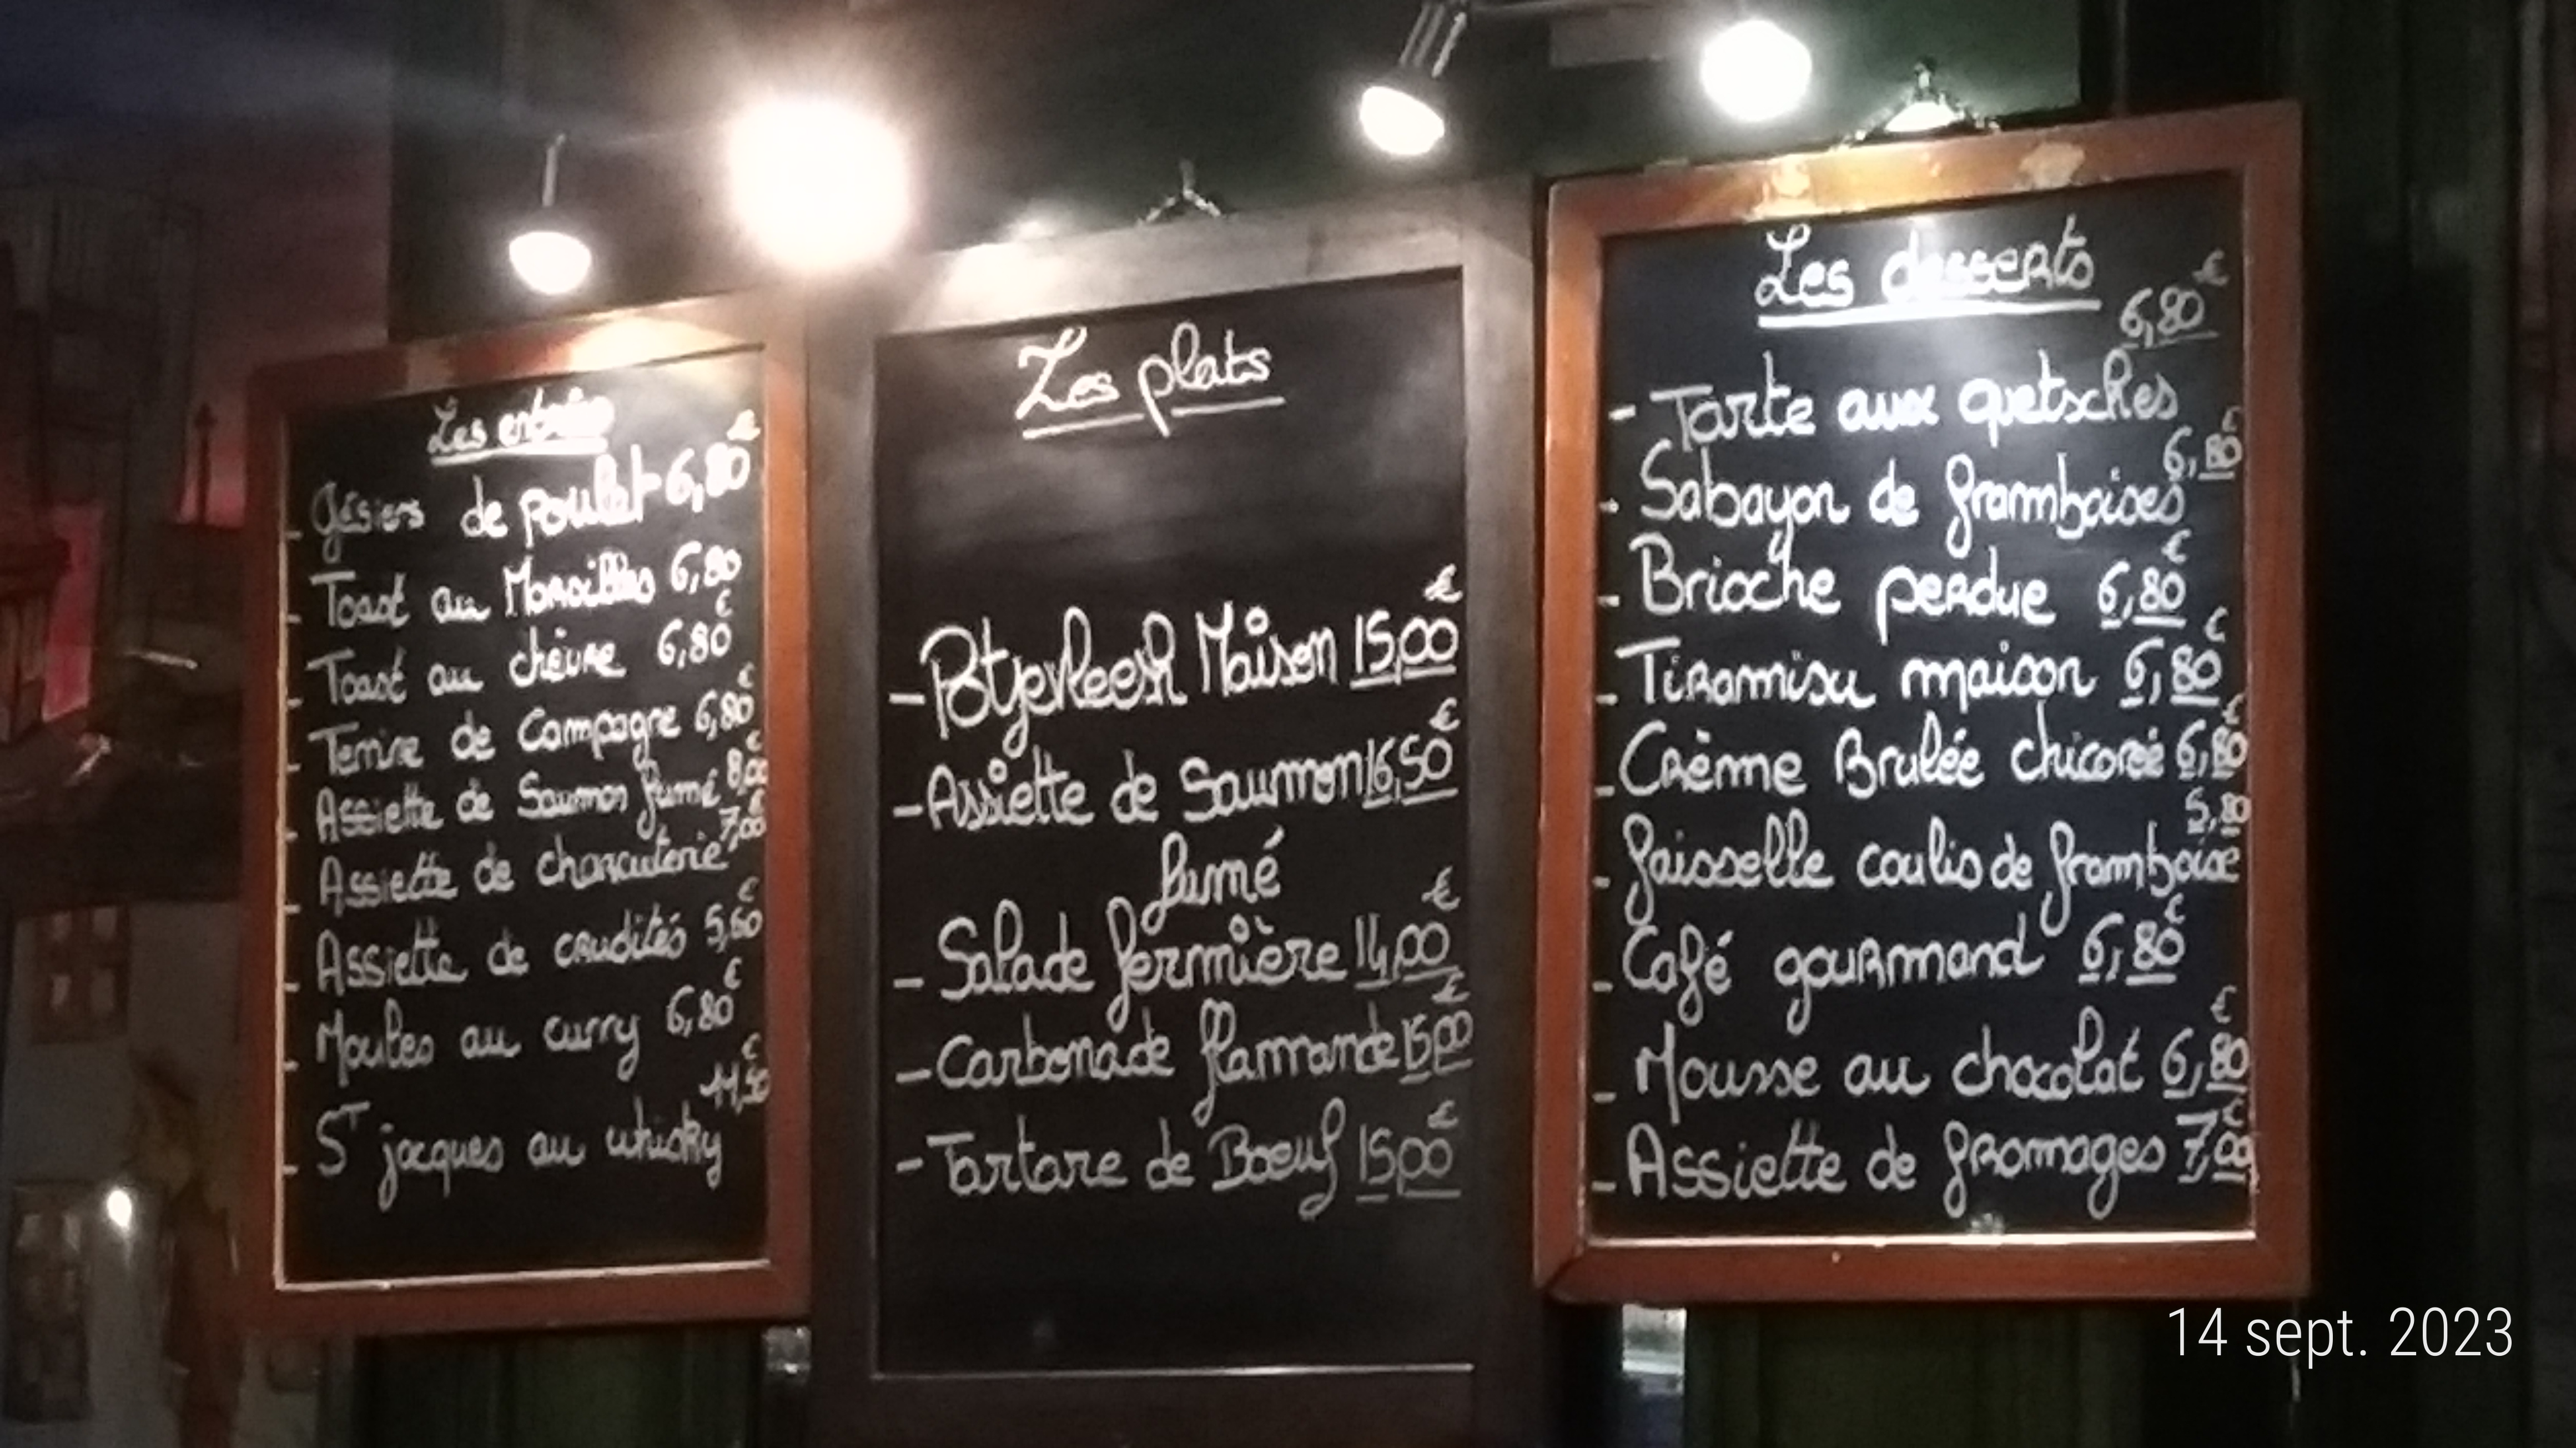 Les entrées
- Gésiers de poulet 6,80€
- Toast au Maroilles 6,80
- Toast au chèvre 6,80€
- Terrine de Campagne 6,80€
- Assiette de Saumon fumé 8,00€
- Assiette de charcuterie 7,00€
- Assiette de crudités 5,60€
- Moules au curry 6,80€
- ST jacques au whisky 11,50€
Les plats
- Potjevleesh Maison 15,00€
- Assiette de Saumon 16,50€
fumé
- Salade fermière 14,00€
- Carbonade flamande 15,00€
- Tartare de Boeuf 15,00€
Les desserts
6,80€
- Tarte aux quetsches
- Sabayon de framboises 6,80€
- Brioche perdue 6,80€
- Tiramisu maison 6,80€
- Crème Brulée chicorée 6,80€
- faisselle coulis de framboise 5,80
- Café gourmand 6,80€
- Mousse au chocolat 6,80€
- Assiette de fromages 7,00€
14 sept. 2023